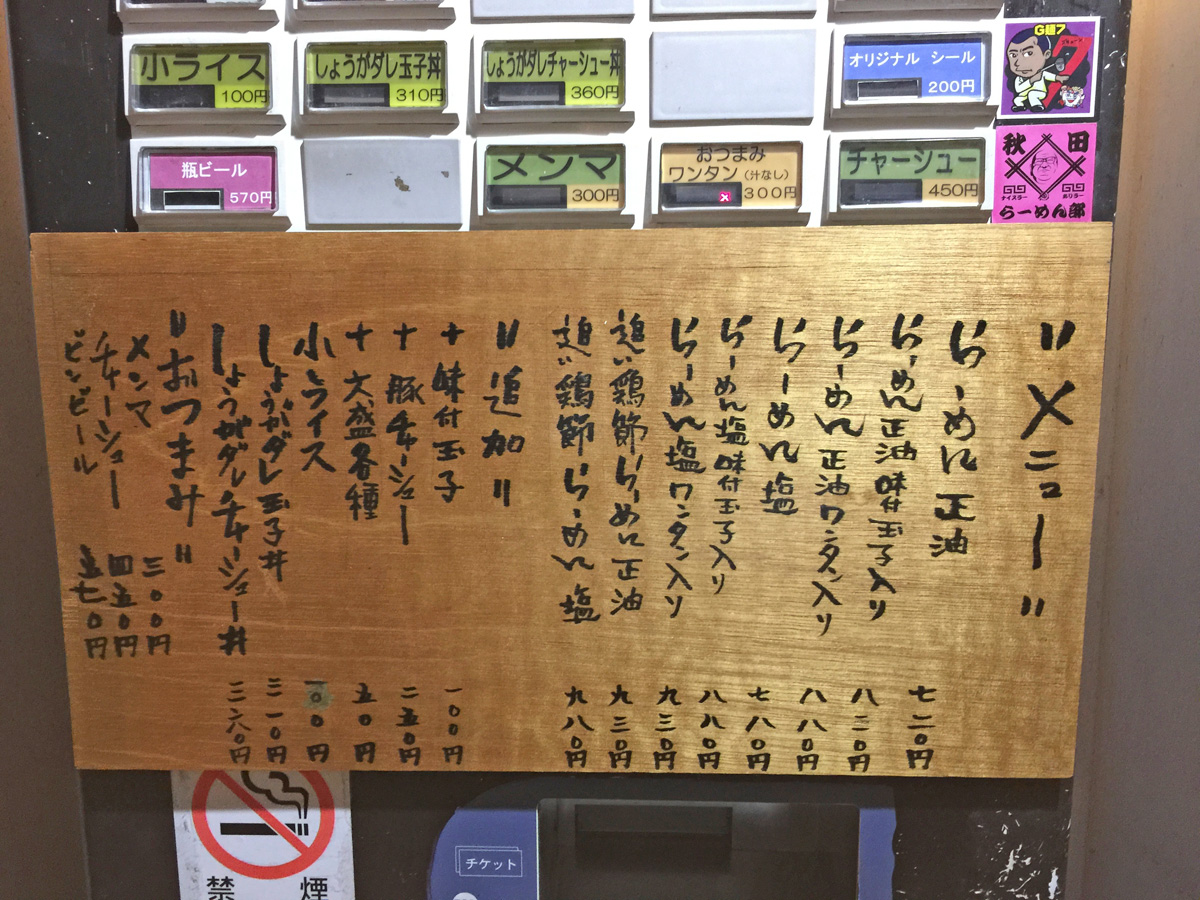 小ライス
100円
しょうがダレ玉子丼
310円
しょうがダレチャーシュー丼
360円
オリジナル シール
200円
G麺7
瓶ビール
570円
メンマ
300円
おつまみ
ワンタン(汁なし)
300円
チャーシュー
450円
秋田
ナイスラー
らーめん部
〃メニュー〃
らーめん正油 七二〇円
らーめん正油味付玉子入り 八二〇円
らーめん正油ワンタン入り 八八〇円
らーめん塩 七八〇円
らーめん塩味付玉子入り 八八〇円
らーめん塩ワンタン入り 九三〇円
追い鶏節らーめん正油 九三〇円
追い鶏節らーめん塩 九八〇円
〃追加〃
+味付玉子 一〇〇円
+豚チャーシュー 二五〇円
+大盛各種 五〇円
小ライス 一〇〇円
しょうがダレ玉子丼 三一〇円
しょうがダレチャーシュー丼 三六〇円
〃おつまみ〃
メンマ 三〇〇円
チャーシュー 四五〇円
ビンビール 五七〇円
禁煙
チケット